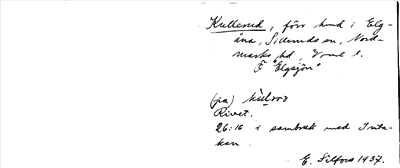 Kullerud, förr hmd i Elg-
åna, Sillerudssn, Nord-
marks hd, Vrml l.
F "Elgsjön"
(på)
Rivet.
26:16 i sambruk med Inta-
kan.
E. Silfors 1937.